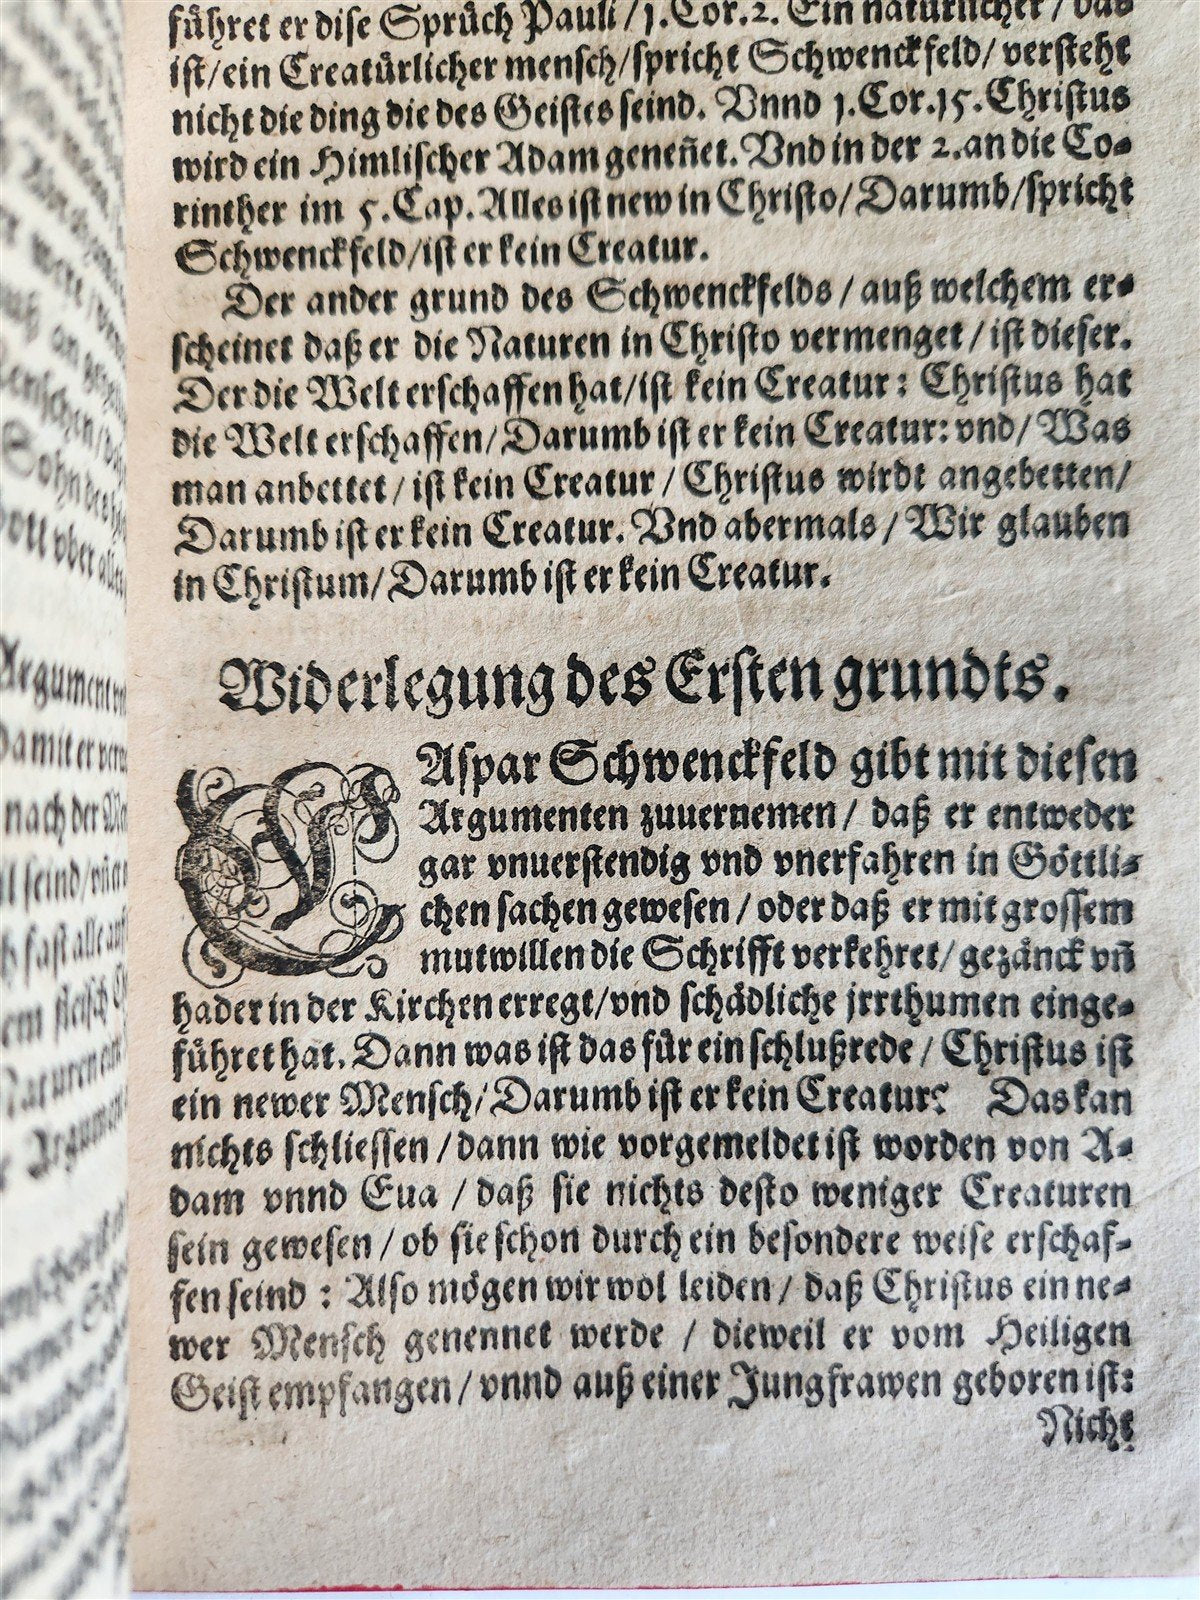 führet er dise Sprüch Pauli / 1. Cor. 2. Ein natürlicher / das
ist / ein Creatürlicher mensch / spricht Schwenckfeld / versteht
nicht die ding die des Geistes seind. Vnnd 1. Cor. 15. Christus
wird ein Himlischer Adam geneñet. Vnd in der 2. an die Co-
rinther im 5. Cap. Alles ist new in Christo / Darumb / spricht
Schwenckfeld / ist er kein Creatur.
Der ander grund des Schwenckfelds / auß welchem er-
scheinet daß er die Naturen in Christo vermenget / ist dieser.
Der die Welt erschaffen hat / ist kein Creatur : Christus hat
die Welt erschaffen / Darumb ist er kein Creatur: vnd / Was
man anbettet / ist kein Creatur / Christus wirdt angebetten /
Darumb ist er kein Creatur. Vnd abermals / Wir glauben
in Christum / Darumb ist er kein Creatur.
Widerlegung des Ersten grundts.
CAspar Schwenckfeld gibt mit diesen
Argumenten zuuernemen / daß er entweder
gar vnuerstendig vnd vnerfahren in Göttli-
chen sachen gewesen / oder daß er mit grossem
mutwillen die Schrifft verkehret / gezänck vñ
hader in der Kirchen erregt / vnd schädliche jrrthumen einge-
führet hat. Dann was ist das für ein schlußrede / Christus ist
ein newer Mensch / Darumb ist er kein Creatur? Das kan
nichts schliessen / dann wie vorgemeldet ist worden von A-
dam vnnd Eua / daß sie nichts desto weniger Creaturen
sein gewesen / ob sie schon durch ein besondere weise erschaf-
fen seind : Also mögen wir wol leiden / daß Christus ein ne-
wer Mensch genennet werde / dieweil er vom Heiligen
Geist empfangen / vnnd auß einer Jungfrawen geboren ist:
Nicht
Argument
Damit er
nach der
seind / vñ
fast alle
fleisch
Naturen